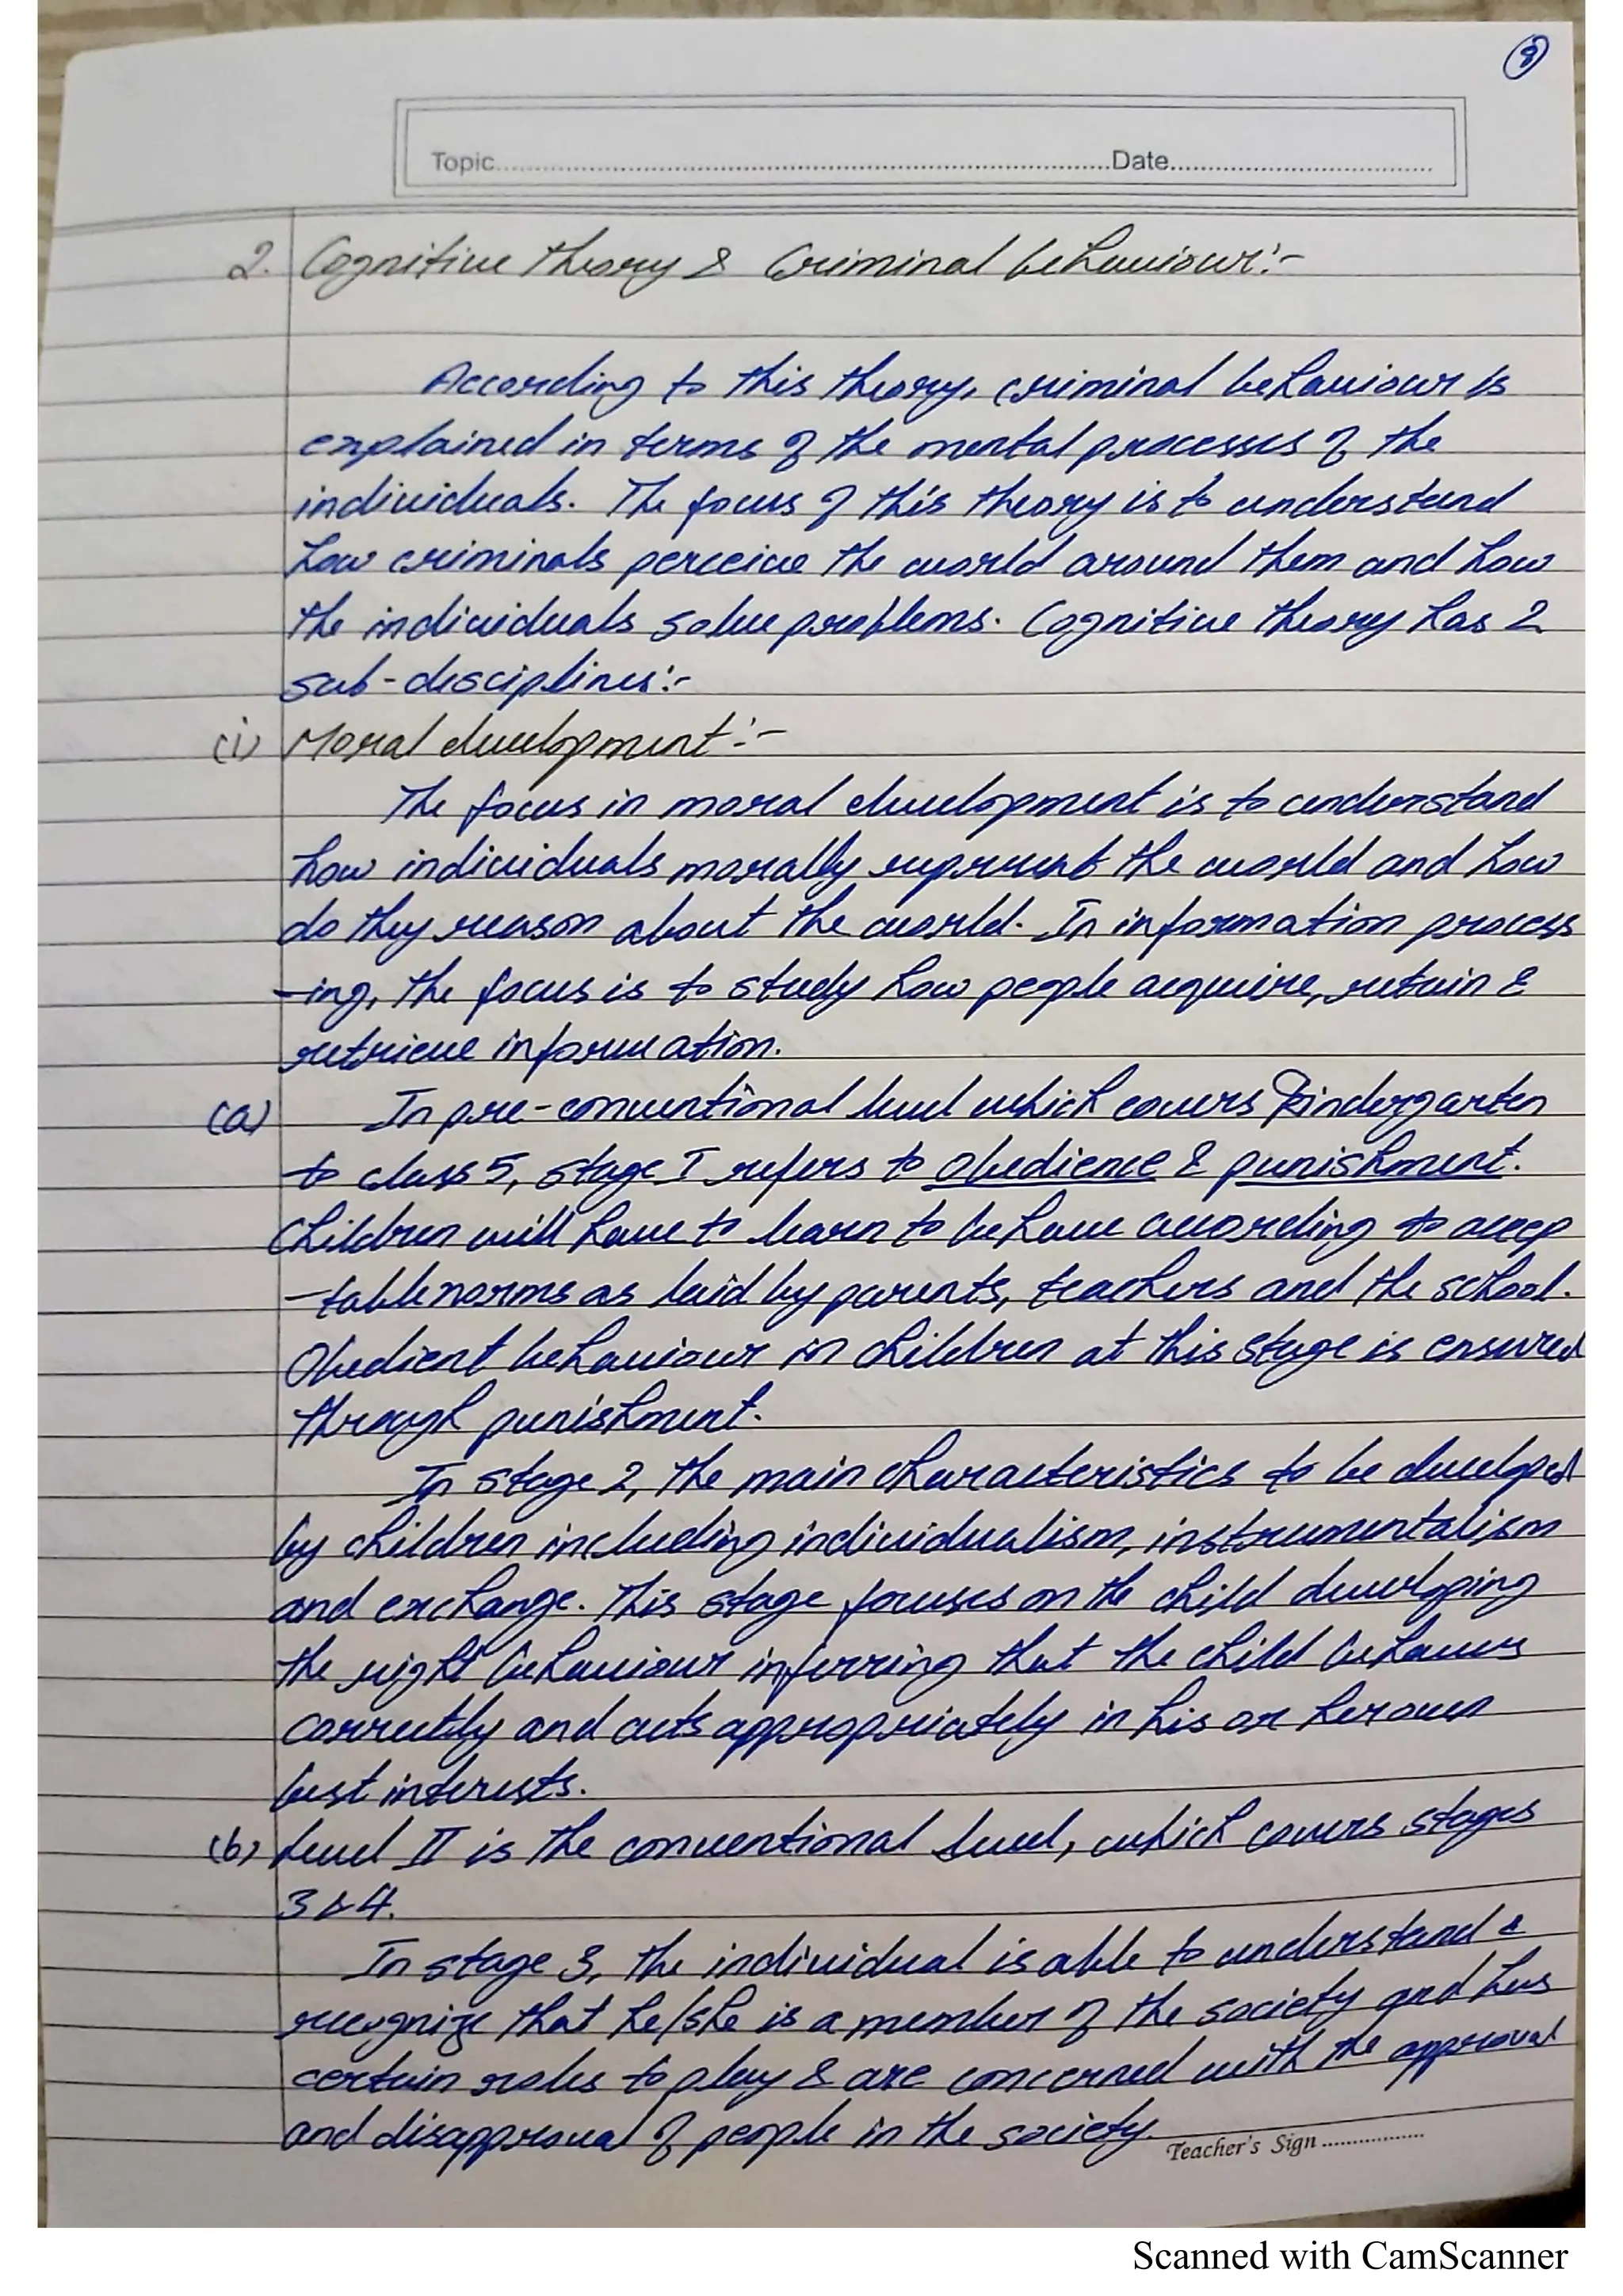 8
Topic..........Date..........
2. Cognitive theory & Criminal behaviour:-
According to this theory, criminal behaviour is
explained in terms of the mental processes of the
individuals. The focus of this theory is to understand
how criminals perceive the world around them and how
the individuals solve problems. Cognitive theory has 2
sub-disciplines:-
(i) Moral development:-
The focus in moral development is to understand
how individuals morally represent the world and how
do they reason about the world. In information process
-ing, the focus is to study how people acquire, retain &
retrieve information.
(a) In pre-conventional level which covers Kindergarten
to class 5, stage I refers to obedience & punishment.
Children will have to learn to behave according to accep
-table norms as laid by parents, teachers and the school.
Obedient behaviour in children at this stage is ensured
through punishment.
In stage 2, the main characteristics to be developed
by children including individualism, instrumentalism
and exchange. This stage focuses on the child developing
the right behaviour inferring that the child behaves
correctly and acts appropriately in his or her own
best interests.
(b) Level II is the conventional level, which covers stages
3 & 4.
In stage 3, the individual is able to understand &
recognize that he/she is a member of the society and has
certain roles to play & are concerned with the approval
and disapproval of people in the society.
Teacher's Sign ................
Scanned with CamScanner